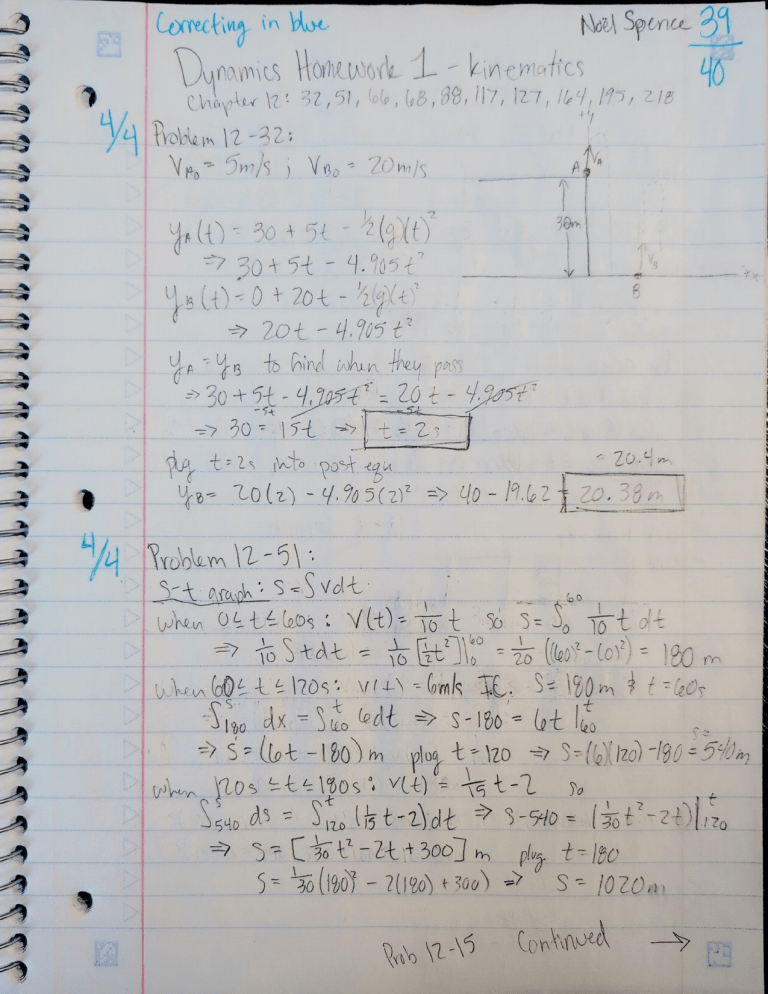 Correcting in blue
Noël Spence 39/40
Dynamics Homework 1 - Kinematics
Chapter 12: 32, 51, 66, 68, 88, 117, 127, 164, 195, 218
4/4 Problem 12-32:
V_A₀ = 5m/s ; V_B₀ = 20m/s
+y
A V_A
30m
V_B
B
+x
y_A(t) = 30 + 5t - ½(g)(t)²
⇒ 30 + 5t - 4.905t²
y_B(t) = 0 + 20t - ½(g)(t)²
⇒ 20t - 4.905t²
y_A = y_B to find when they pass
⇒ 30 + 5t - 4.905t² = 20t - 4.905t²
-5t -5t
⇒ 30 = 15t ⇒ t = 2s
plug t=2s into post equ
≈ 20.4m
y_B = 20(2) - 4.905(2)² ⇒ 40 - 19.62 = 20.38m
4/4 Problem 12-51:
s-t graph: s = ∫vdt
when 0≤t≤60s: V(t) = 1/10 t so s = ∫₀⁶⁰ 1/10 t dt
⇒ 1/10 ∫tdt = 1/10 [½t²]|₀⁶⁰ = 1/20 ((60)² - (0)²) = 180 m
when 60≤t≤120s: v(t) = 6m/s I.C. S=180m & t=60s
∫₁₈₀ˢ dx = ∫₆₀ᵗ 6dt ⇒ s-180 = 6t|₆₀ᵗ
⇒ s = (6t-180)m plug t=120 ⇒ s=(6)(120)-180 = 540m
s=
when 120s ≤t≤180s: v(t) = 1/15 t - 2 so
∫₅₄₀ˢ ds = ∫₁₂₀ᵗ (1/15 t - 2)dt ⇒ s-540 = (1/30 t² - 2t)|₁₂₀ᵗ
⇒ s = [1/30 t² - 2t + 300] m plug t=180
s = 1/30 (180)² - 2(180) + 300) ⇒ s = 1020m
Prob 12-15 Continued →